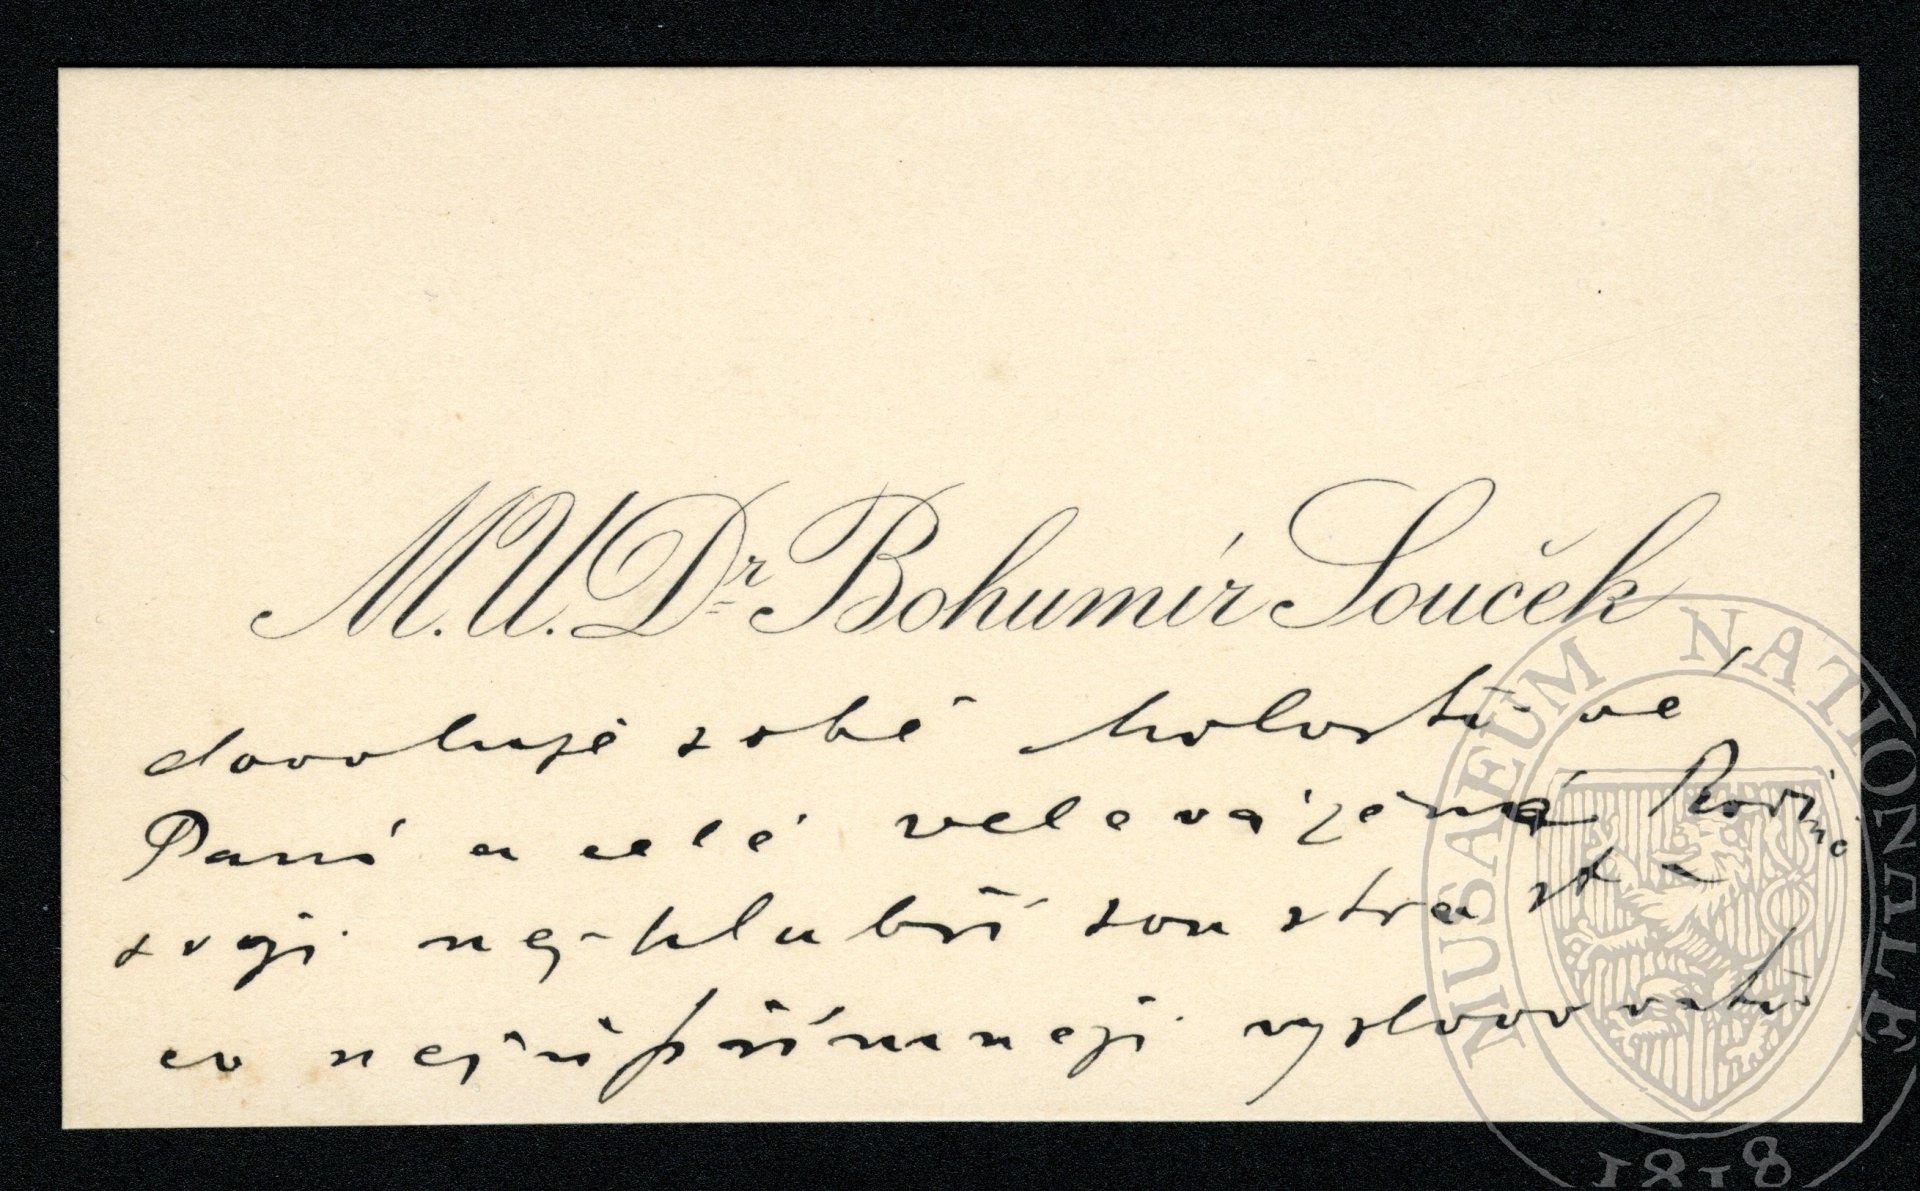 M.U.Dr Bohumír Souček
dovoluje sobě milosti-vé
Paní a celé velevážené Rodině
svoji nej-hlubší soustrast
co nejúpřímněji vysloviti
MUSAEUM NATIONALE
1818